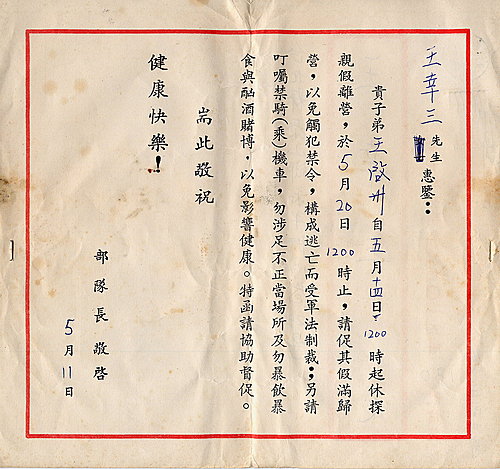 王幸三先生 惠鑒：
貴子弟王啟自五月十四日1200時起休探
親假離營，於5月20日1200時止，請促其假滿歸
營，以免觸犯禁令，構成逃亡而受軍法制裁；另請
叮囑禁騎(乘)機車，勿涉足不正當場所及勿暴飲暴
食與酗酒賭博，以免影響健康。特函請協助督促。
耑此敬祝
健康快樂！
部隊長 敬啓
5月11日